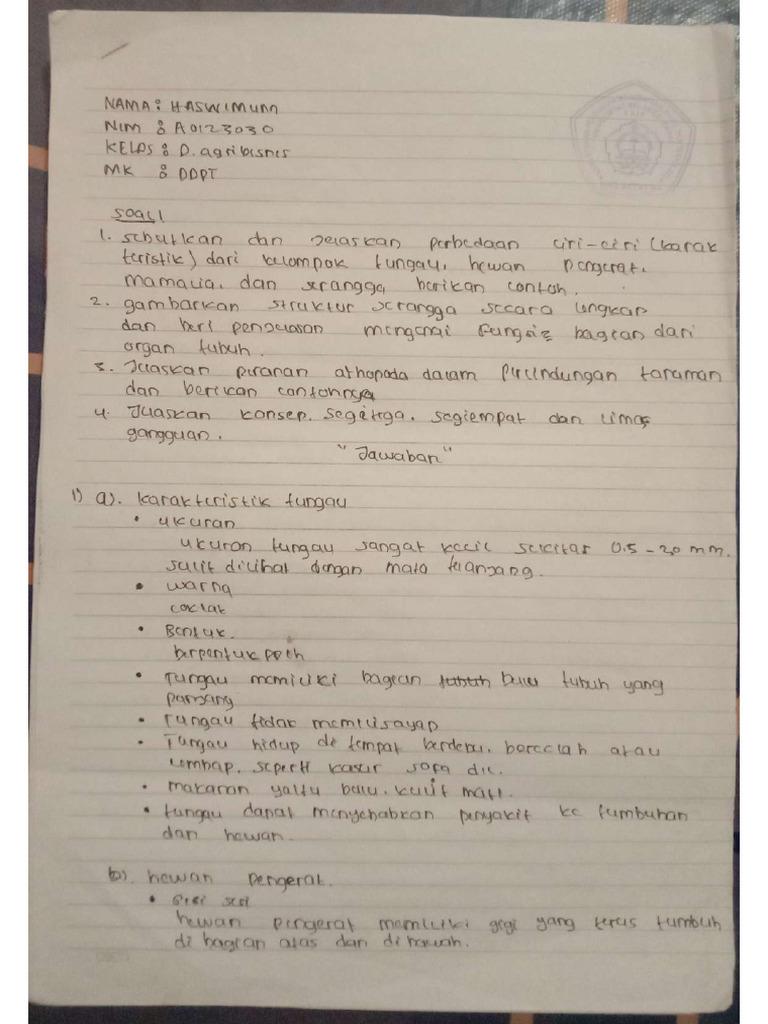 NAMA : HASWIMUNA
NIM : A0123030
KELAS : D. agribisnis
MK : DDPT
SOAL
1. sebutkan dan Jelaskan perbedaan ciri-ciri (karak
teristik) dari kelompok tungau, hewan pengerat,
mamalia, dan serangga, berikan contoh.
2. gambarkan struktur serangga secara lengkap
dan beri penjelasan mengenai fungsi2 bagian dari
organ tubuh.
3. Jelaskan peranan athopoda dalam perlindungan tanaman
dan berikan contohnya
4. Jelaskan konsep segitiga, segiempat dan limas
gangguan.
"Jawaban"
1) a). karakteristik tungau
• ukuran
ukuran tungau sangat kecil sekitar 0.5 - 20 mm.
sulit dilihat dengan mata telanjang.
• warna
coklat
• Bentuk.
berbentuk
• Tungau memiliki bagian bulu tubuh yang
panjang
• Tungau tidak memilisayap
• Tungau hidup di tempat berdebu, bercelah atau
lembap. seperti kasur sofa dll.
• makanan yaitu bulu, kulit mati.
• tungau dapat menyebabkan penyakit ke tumbuhan
dan hewan.
b). hewan pengerat.
• Gigi seri
hewan pengerat memiliki gigi yang terus tumbuh
di bagian atas dan di bawah.